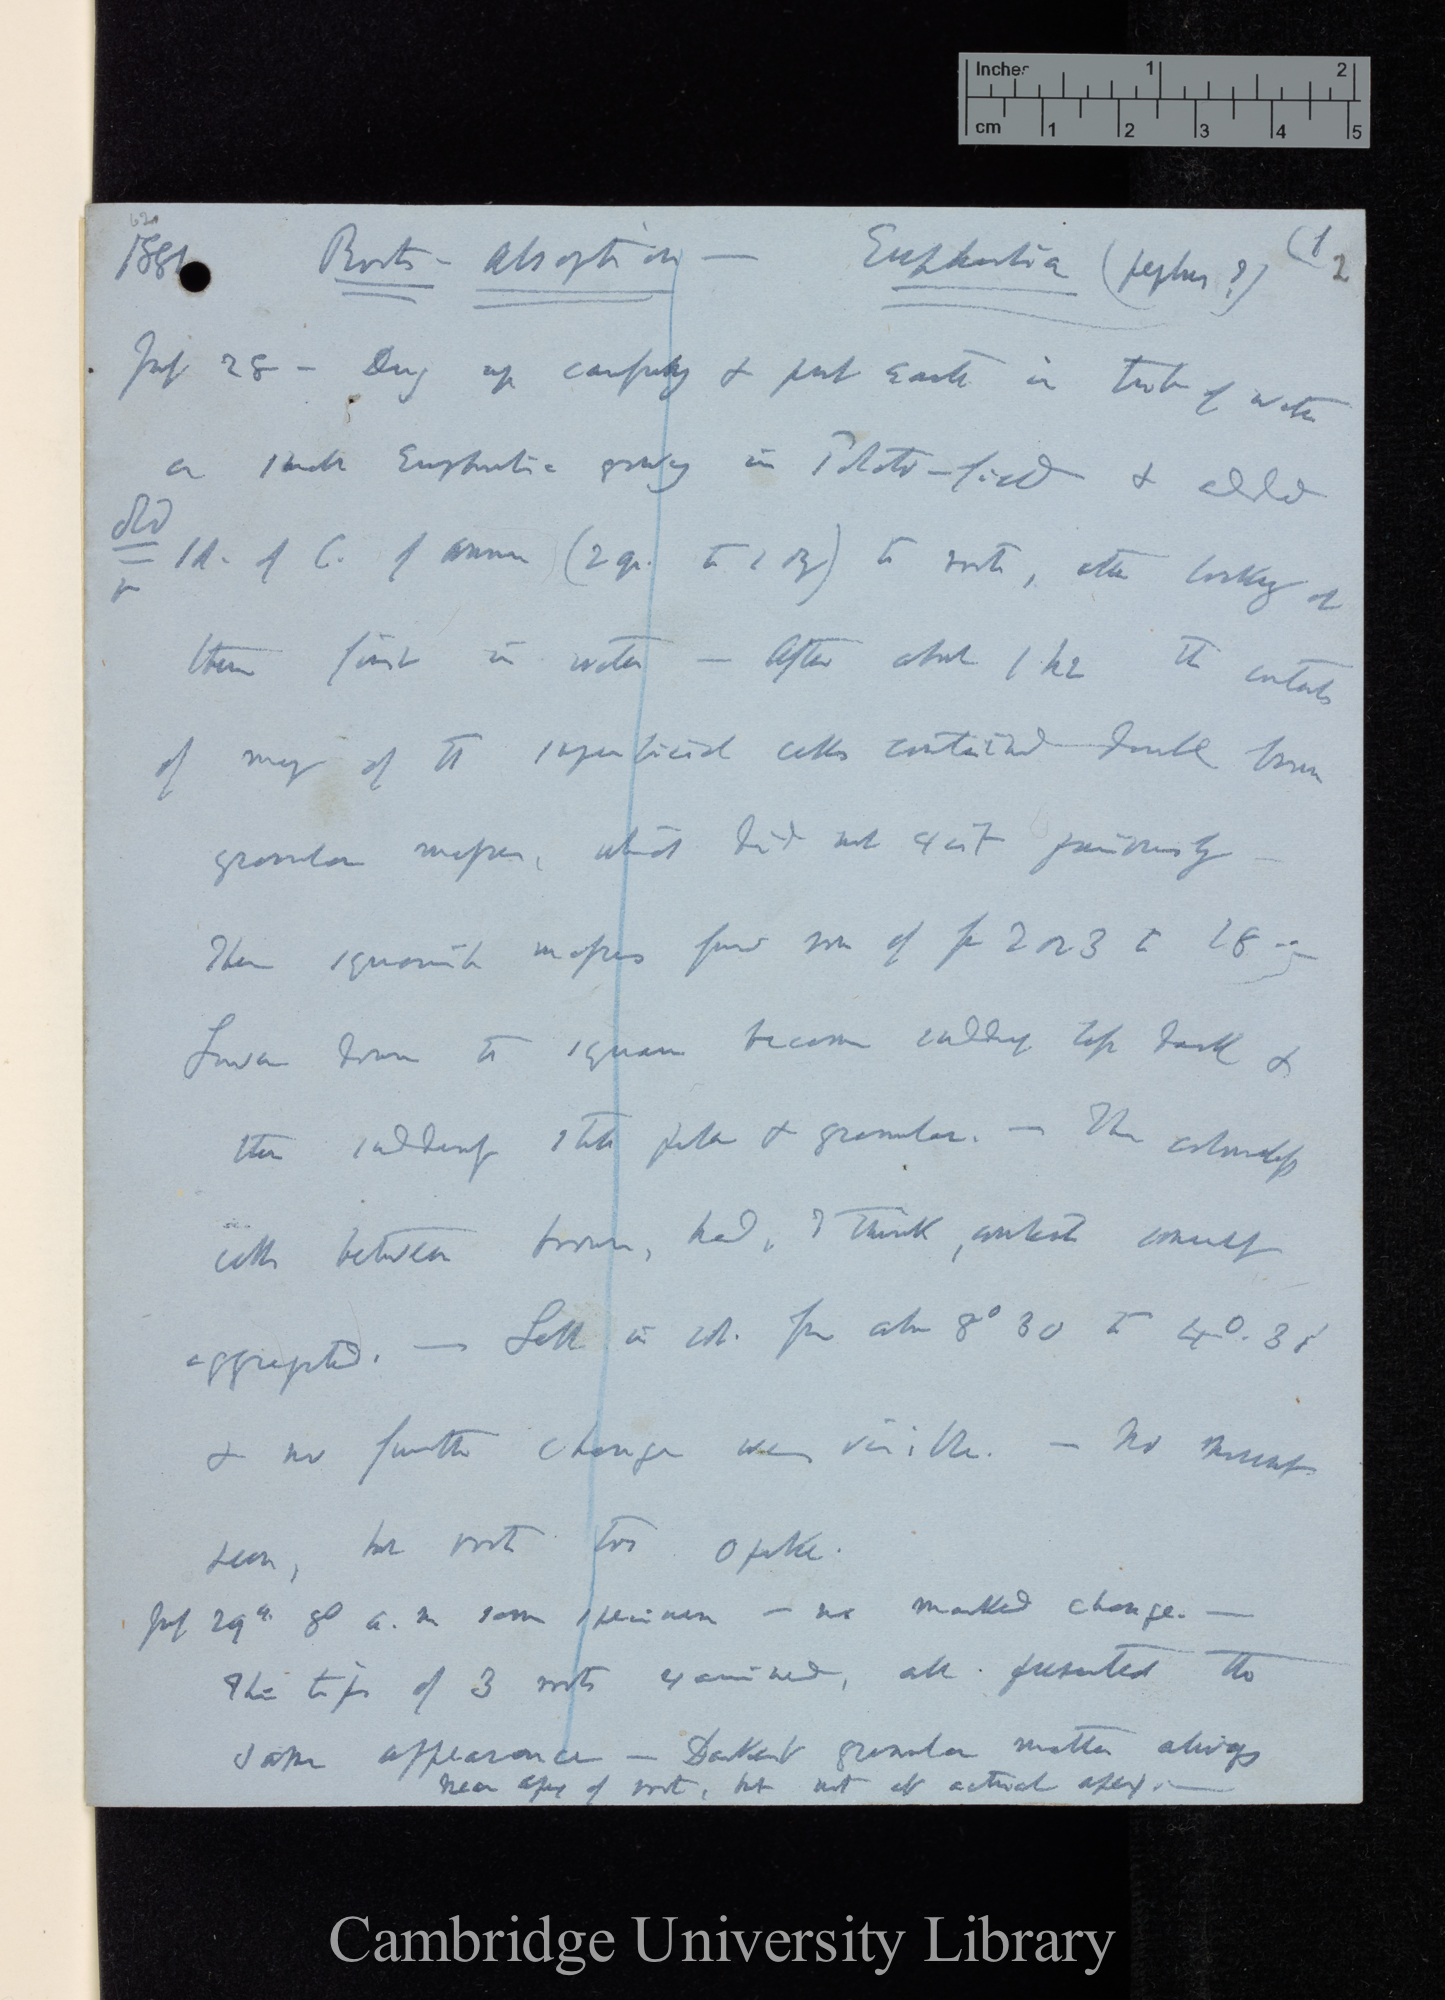 Inches 1 2
cm 1 2 3 4 5
62
1881 Roots – absorption — Euphorbia (peplus?) (1 2
July 28 – Dug up carefully & put earth in tub of water
a small Euphorbia growing in Potato-field & added
old sol. of C. of ammon (2 gr. to 1 oz) to roots, after looking at
them first in water — After about 1 h the contents
of many of the superficial cells contained double brown
granular masses, which did not exist previously —
These squarish masses form rows of from 2 or 3 to 18 or
Lower down the squares become suddenly less dark &
then suddenly still paler & granular. — The colourless
cells between brown, had, I think, contents
aggregated. — Left in sol. from about 8° 30 to 4°. 30
& no further change was visible. — No movement
seen, but roots too opake.
July 29th 8° a.m same specimen — no marked change. —
The tips of 3 roots examined, all presented the
same appearance — Darkest granular matter always
near apex of root, but not at actual apex. —
Cambridge University Library